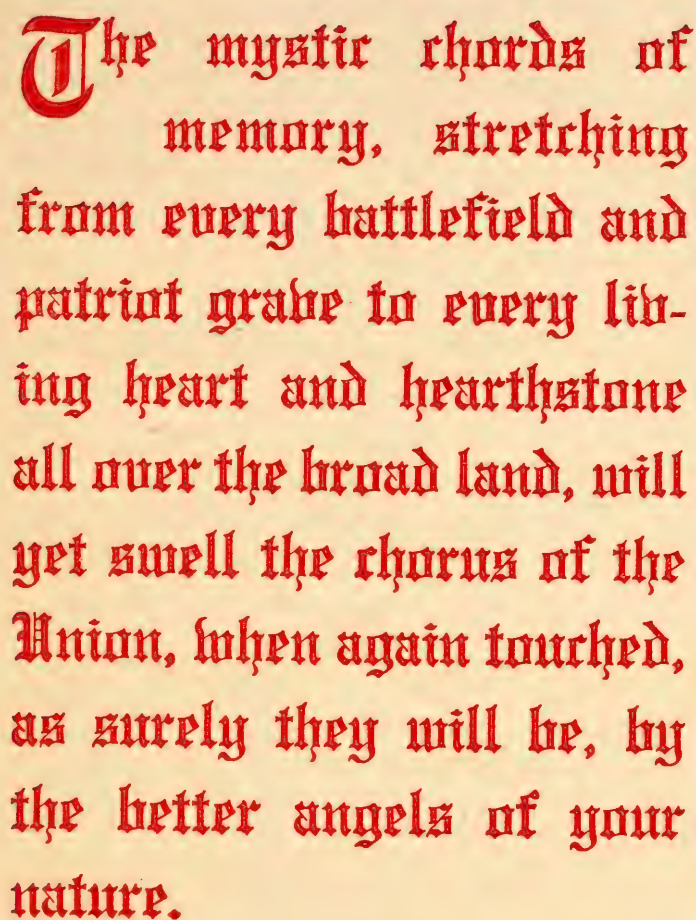 The mystic chords of
memory, stretching
from every battlefield and
patriot grave to every liv-
ing heart and hearthstone
all over the broad land, will
yet swell the chorus of the
Union, when again touched,
as surely they will be, by
the better angels of your
nature.